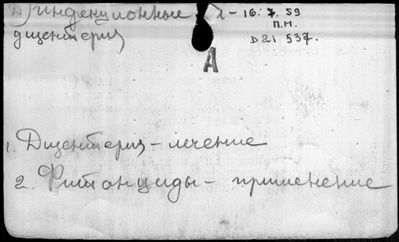 инфекционные л - 16.7.59
П.М.
дизентерия Д21 537.
А
1. Дизентерия - лечение
2. Фитонциды - применение